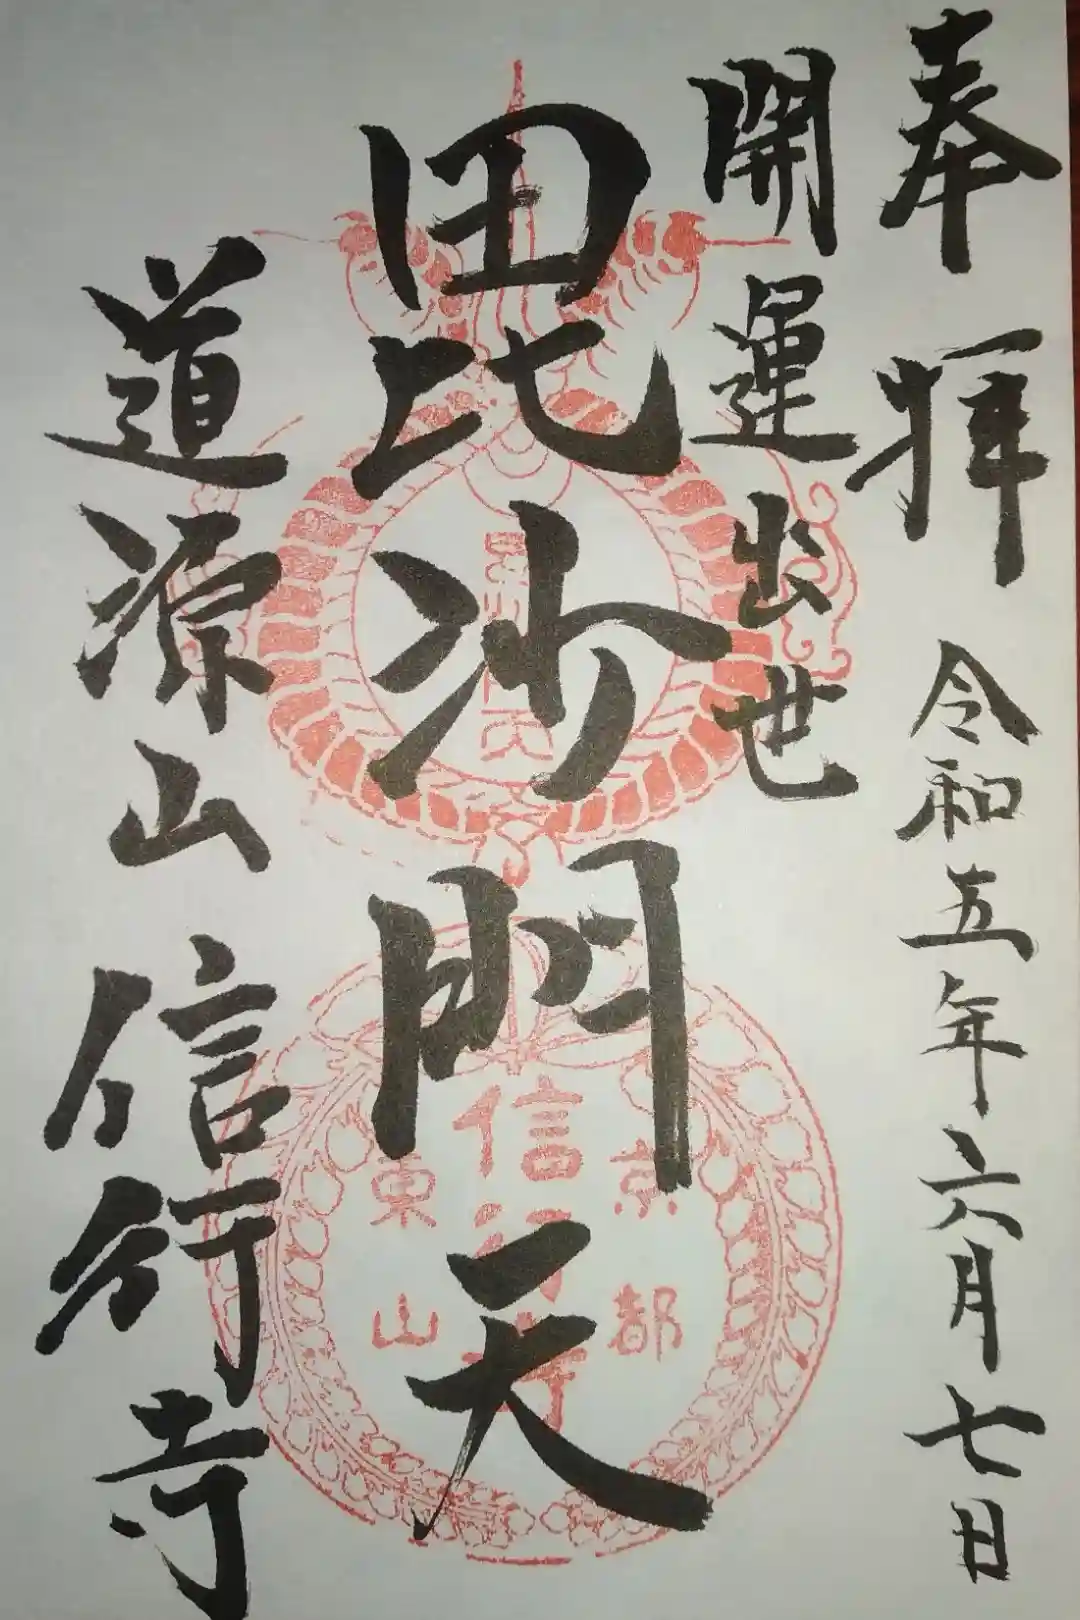 奉拝 令和五年六月七日
開運出世
毘沙門天
道源山 信行寺
京都
信行寺
東山